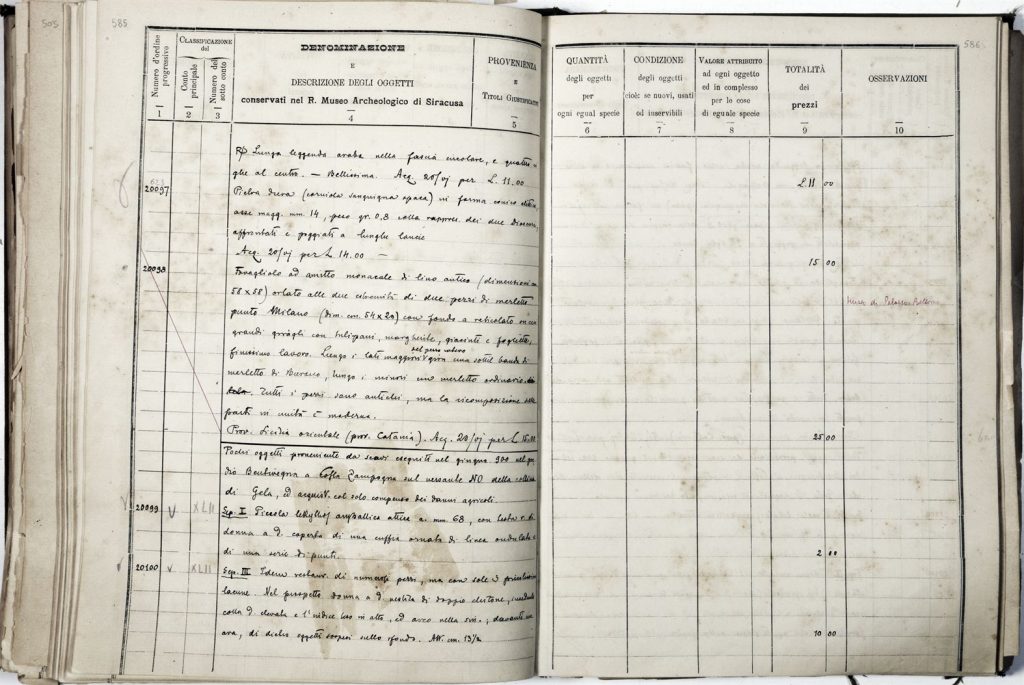 505
585
586
Numero d'ordine progressivo
CLASSIFICAZIONE
del
Conto principale
Numero del sotto conto
DENOMINAZIONE
E
DESCRIZIONE DEGLI OGGETTI
conservati nel R. Museo Archeologico di Siracusa
PROVENIENZA
E
TITOLI GIUSTIFICATIVI
1
2
3
4
5
QUANTITÀ
degli oggetti
per
ogni egual specie
6
CONDIZIONE
degli oggetti
cioè: se nuovi, usati
od inservibili
7
VALORE ATTRIBUITO
ad ogni oggetto
ed in complesso
per le cose
di eguale specie
8
TOTALITÀ
dei
prezzi
9
OSSERVAZIONI
10
Lunga leggenda araba nella fascia circolare, e quattro
ghe al centro. — Bellissima. Acq. 20/VJ per L. 11.00
L. 11 00
20097
Pietra dura (corniola sanguigna opaca) in forma conico
asse magg. mm. 14, peso gr. 0,8 colla rappres. dei due Dioscuri
affrontati e poggiati a lunghe lancie
Acq. 20/VJ per L. 14.00 —
15 00
20098
Tovagliolo ad amitto monacale di lino antico (dimensioni cm
58 x 58) orlato alle due estremità di due pezzi di merletto
punto Milano (dim. cm. 54 x 20) con fondo a reticolato
grandi tulipani, margherite, giacinte e foglietti,
finissimo lavoro. Lungo i lati maggiori gira una sottil banda di
del pezzo intero
merletto di Burano, lungo i minori uno merletto ordinario
Tutti i pezzi sono antichi, ma la ricomposizione delle
parti in unità è moderna.
Prov. Sicilia orientale (prov. Catania). Acq. 20/VJ per L.
25 00
Pochi oggetti proveniente da scavi eseguiti nel giugno 900 nel po-
dio Bentivegna a Costa Zampogna sul versante NO della collina
di Gela, ed acquist. col solo compenso dei danni agricoli.
20099 V XLII
Sep. I Piccola lekythos aryballica attica a. mm. 68, con testa di
donna a d. coperta di una cuffia ornata di linea ondulata e
di una serie di punti.
2 00
20100 V XLII
Sep. III Idem restaur. di numerosi pezzi, ma con sole 3 piccolissime
lacune. Nel prospetto donna a d. vestita di doppio chitone,
colla d. elevata e l'indice teso in alto, ed arco nella sin.; davanti un
ara, di dietro oggetti sospesi sullo sfondo. Alt. cm. 13½
10 00